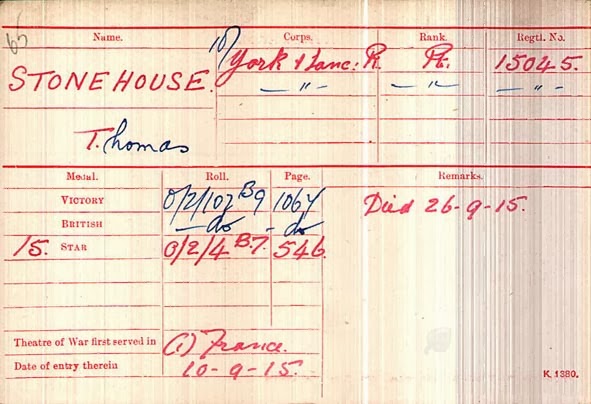 65
Name. Corps. Rank. Regtl. No.
10/ York & Lanc: R. Pt. 15045.
STONEHOUSE. — " — — " — — " —
Thomas
Medal. Roll. Page. Remarks.
VICTORY O/2/107 B9 1064 Died 26-9-15.
BRITISH — do — do
15. STAR O/2/4 B.7. 546.
Theatre of War first served in (1) France.
Date of entry therein 10-9-15.
K. 1380.